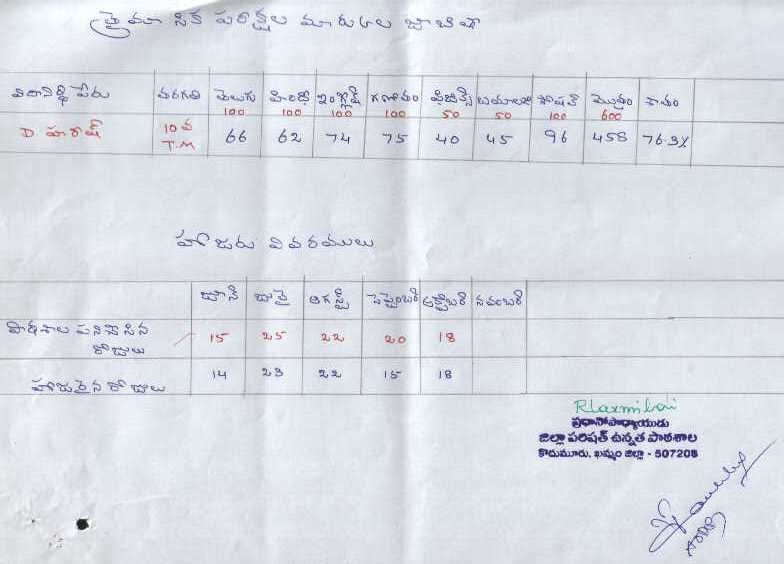 త్రైమాసిక పరీక్షల మార్కుల జాబితా
విద్యార్థి పేరు తరగతి తెలుగు 100 హిందీ 100 ఇంగ్లీష్ 100 గణితం 100 ఫిజిక్స్ 50 బయాలజి 50 సోషల్ 100 మొత్తం 600 శాతం
D హరీష్ 10వ T.M 66 62 74 75 40 45 96 458 76.3%
హాజరు వివరములు
జూన్ జులై ఆగస్ట్ సెప్టెంబర్ అక్టోబర్ నవంబర్
పాఠశాల పనిచేసిన రోజులు 15 25 22 20 18
హాజరైన రోజులు 14 23 22 15 18
R Laxmibai
ప్రధానోపాధ్యాయుడు
జిల్లా పరిషత్ ఉన్నత పాఠశాల
కొదుమూరు, ఖమ్మం జిల్లా - 507208